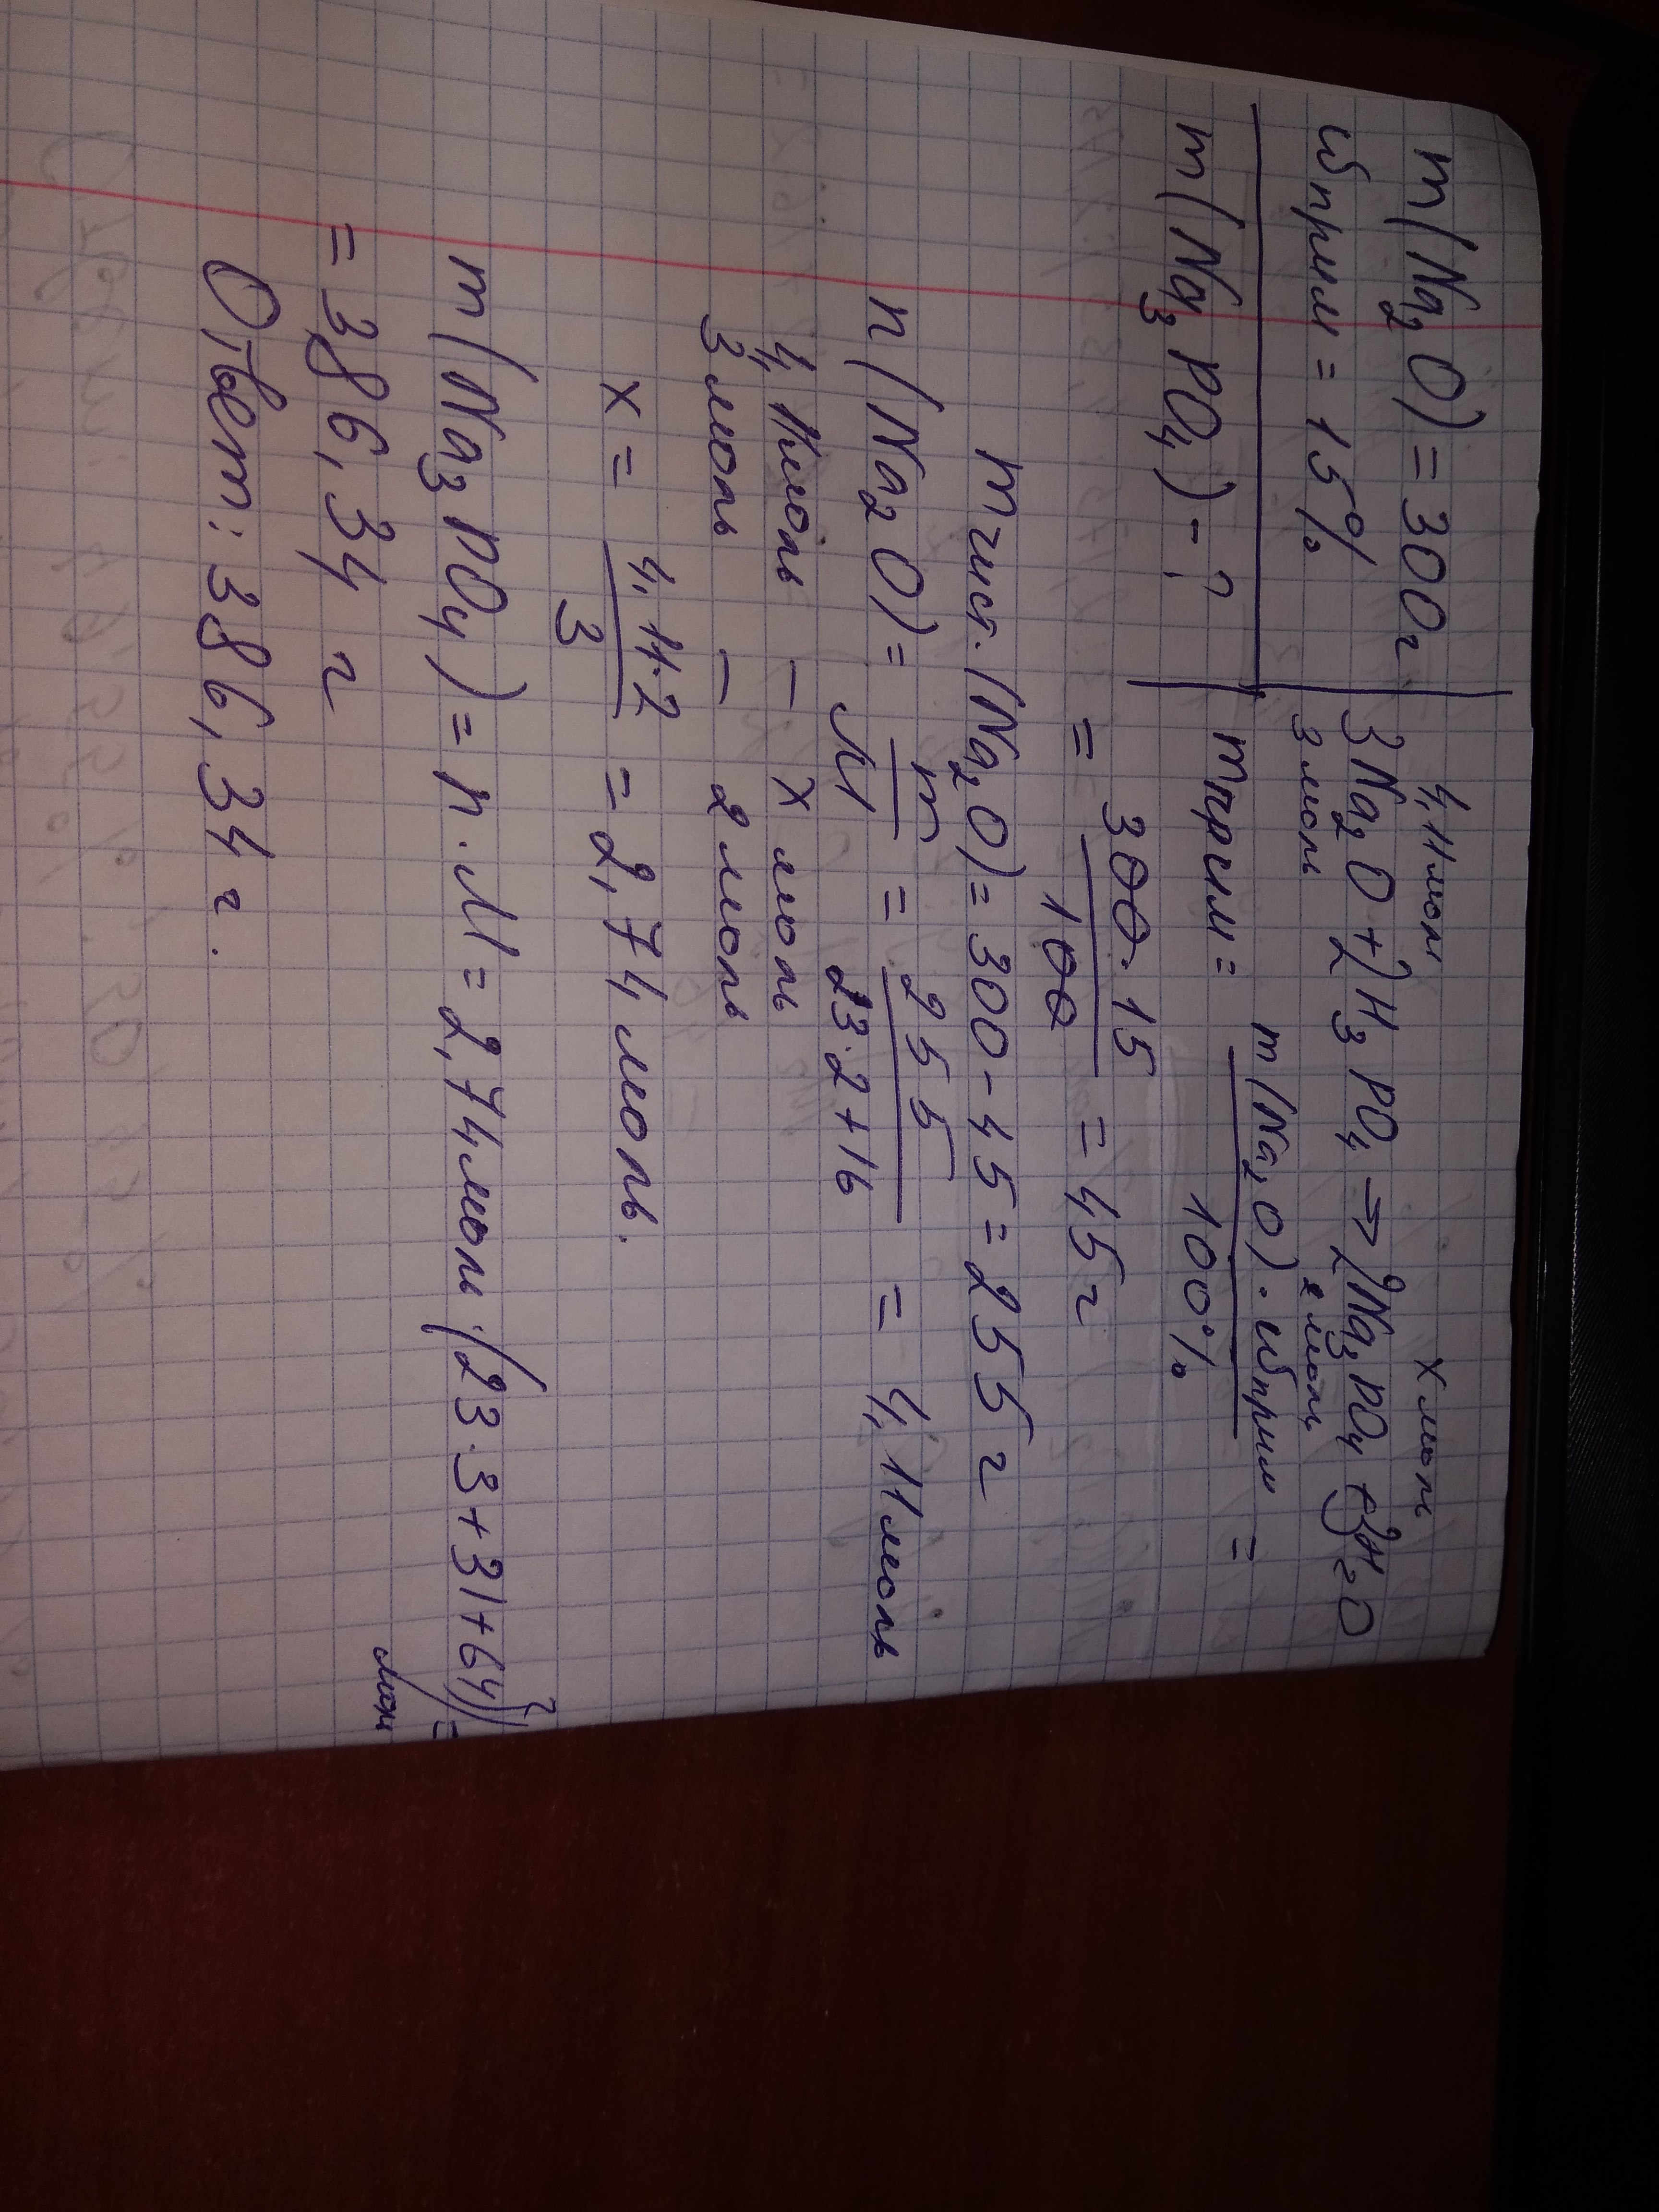 m(Na₂O) = 300г
ωприм = 15%
m(Na₃PO₄) - ?
4,11моль
x моль
3Na₂O + 2H₃PO₄ → 2Na₃PO₄ + 3H₂O
3 моль
2 моль
mприм = m(Na₂O) · ωприм / 100% =
= 300 · 15 / 100 = 45г
m чист. (Na₂O) = 300 - 45 = 255 г
n(Na₂O) = m / M = 255 / 23·2+16 = 4,11моль
4,11моль - x моль
3 моль - 2 моль
x = 4,11·2 / 3 = 2,74 моль.
m(Na₃PO₄) = n · M = 2,74моль · (23·3+31+64) г/моль =
= 386,34 г
Ответ: 386,34 г.